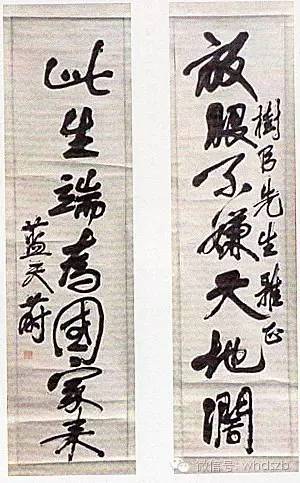 放眼不嫌天地濶
樹 先生雅正
此生端為國家来
藍天蔚
微信号: whdszb